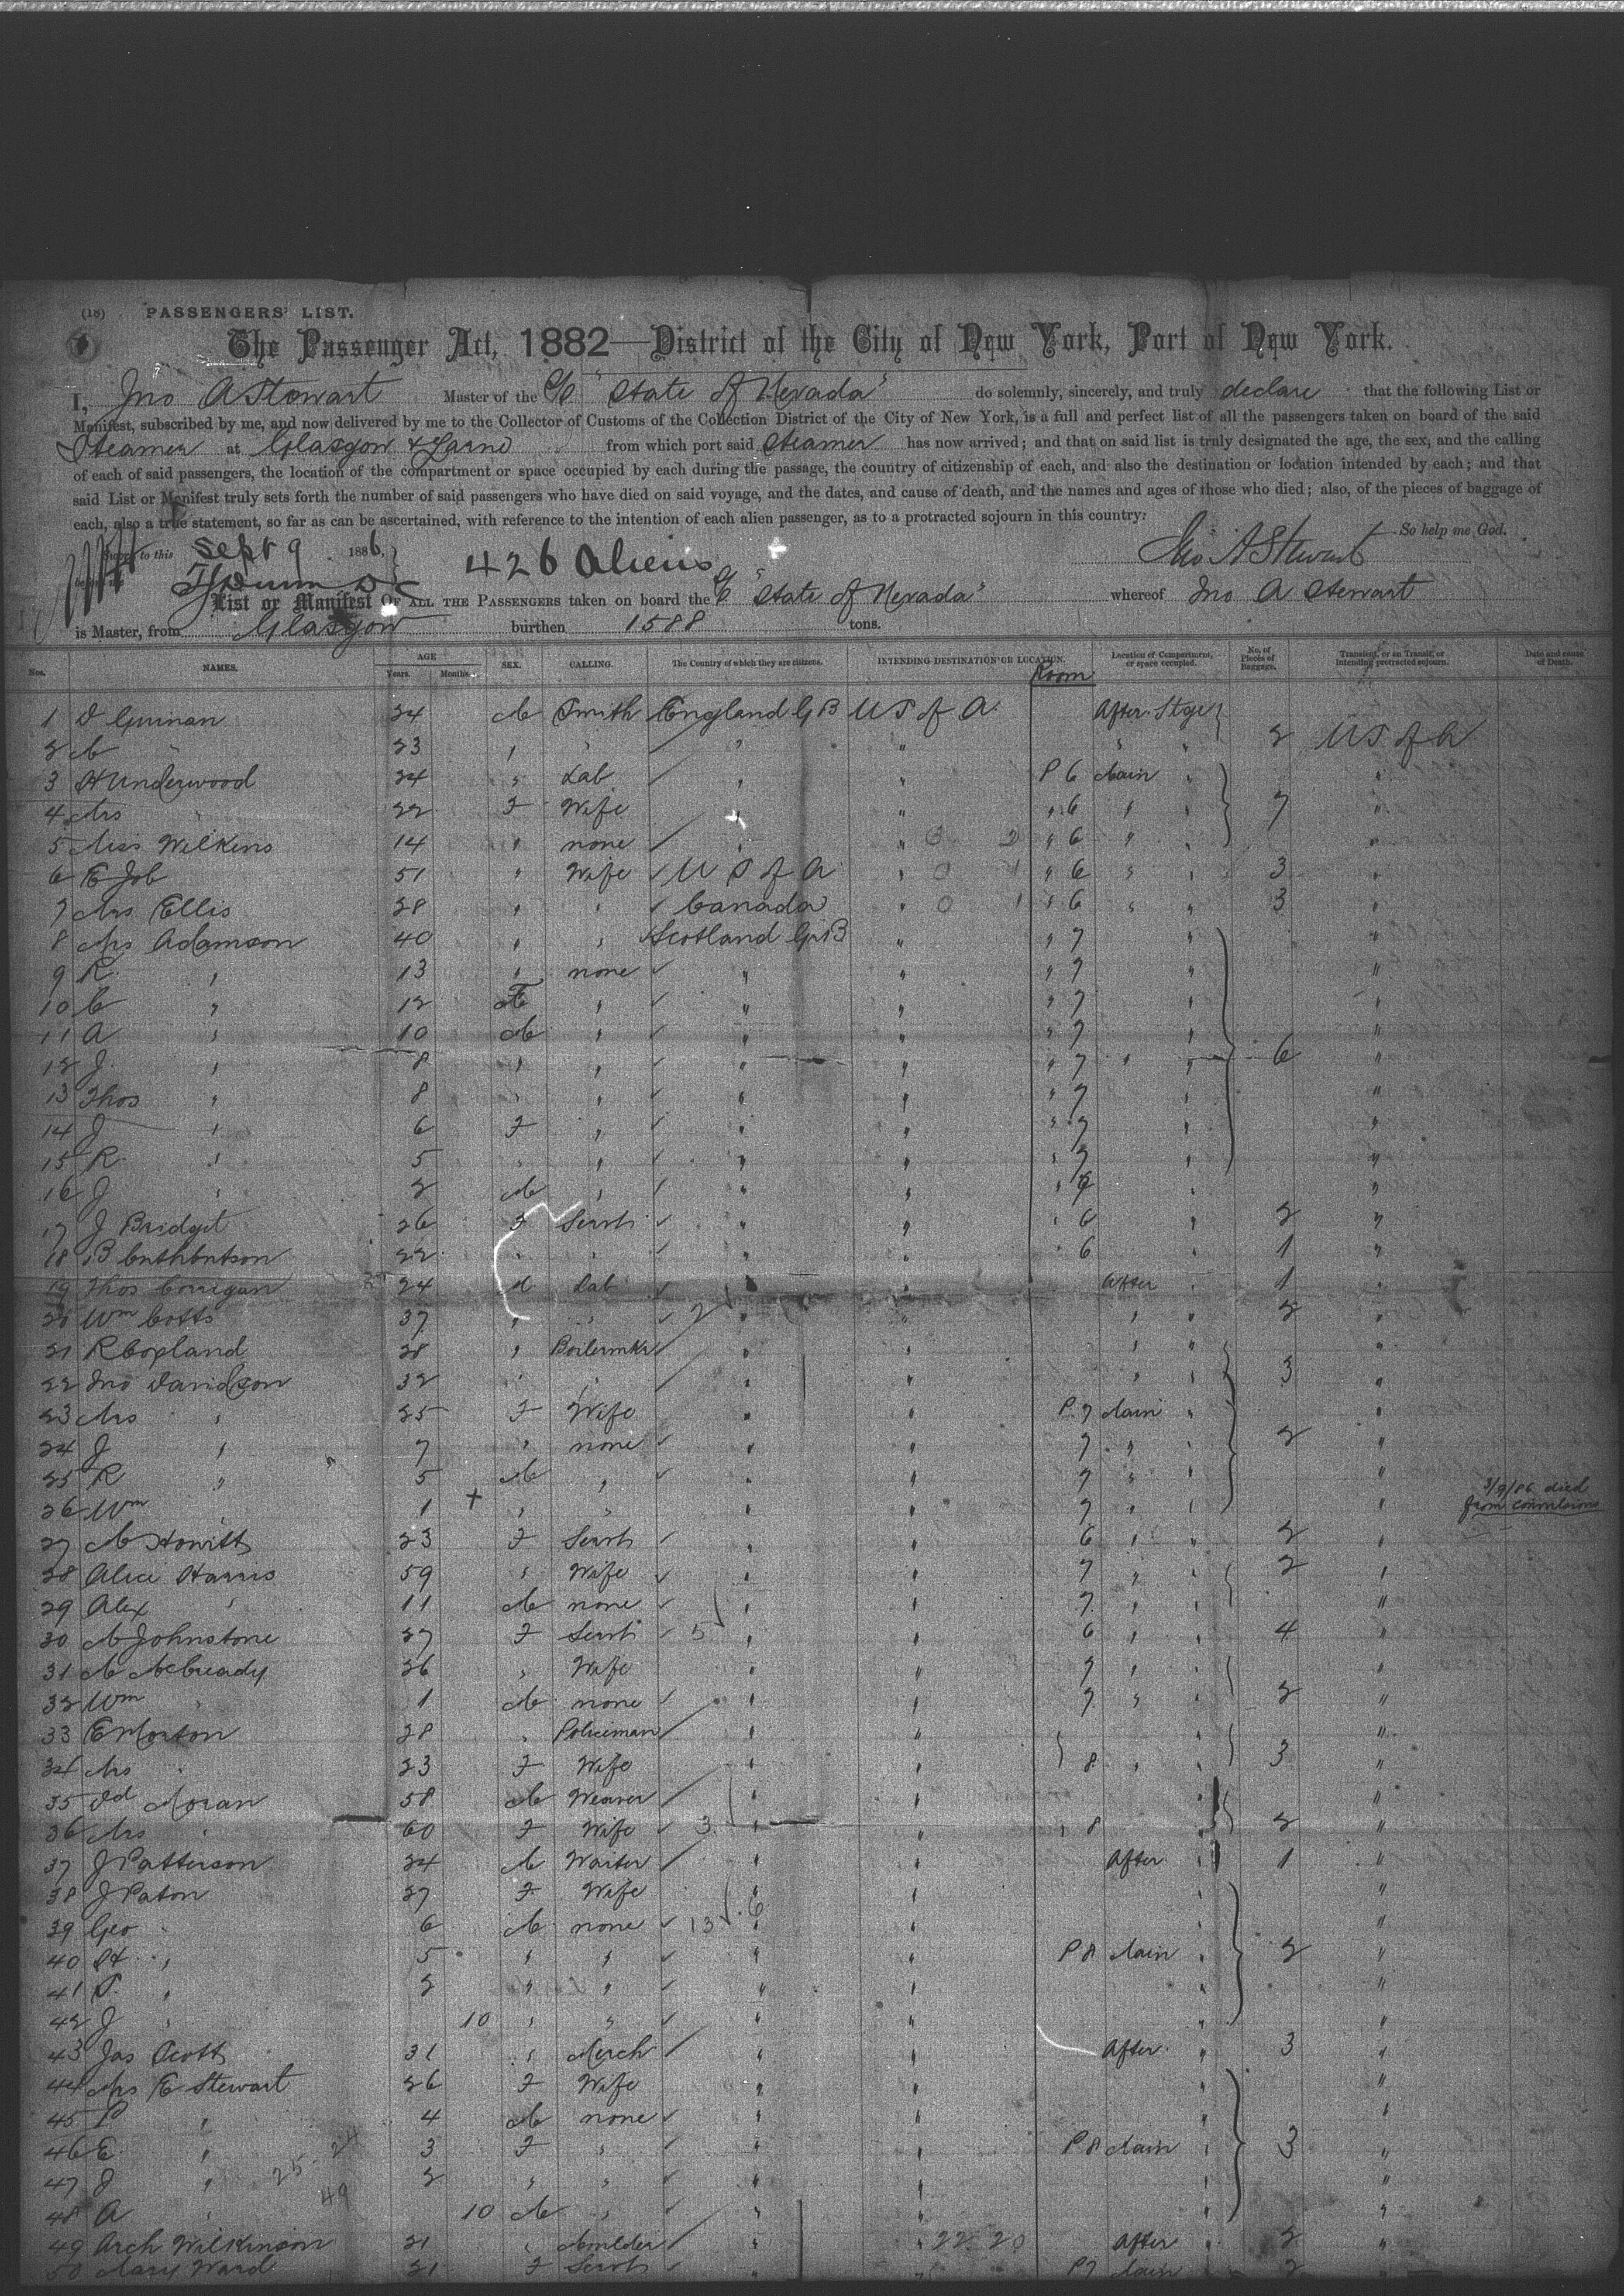 (18) PASSENGERS' LIST.
The Passenger Act, 1882—District of the City of New York, Port of New York.
I, Jno A Stewart Master of the S/S "State of Nevada" do solemnly, sincerely, and truly declare that the following List or
Manifest, subscribed by me, and now delivered by me to the Collector of Customs of the Collection District of the City of New York, is a full and perfect list of all the passengers taken on board of the said
Steamer at Glasgow & Larne from which port said Steamer has now arrived; and that on said list is truly designated the age, the sex, and the calling
of each of said passengers, the location of the compartment or space occupied by each during the passage, the country of citizenship of each, and also the destination or location intended by each; and that
said List or Manifest truly sets forth the number of said passengers who have died on said voyage, and the dates, and cause of death, and the names and ages of those who died; also, of the pieces of baggage of
each, also a true statement, so far as can be ascertained, with reference to the intention of each alien passenger, as to a protracted sojourn in this country:
So help me God.
to this Sept 9 1886, 426 Aliens Jno A Stewart
List or Manifest OF ALL THE PASSENGERS taken on board the S/S "State of Nevada" whereof Jno A Stewart
is Master, from Glasgow burthen 1588 tons.
Nos. NAMES. AGE Years. Months. SEX. CALLING. The Country of which they are citizens. INTENDING DESTINATION OR LOCATION. Room Location of Compartment, or space occupied. No. of Pieces of Baggage. Transient, or in Transit, or Intending protracted sojourn. Date and cause of Death.
1 D Guinan 24 M Smith England GB US of A After Stge
2 M " 23 " " " " " " 2 US of A
3 H Underwood 24 " Lab " " P 6 Main " "
4 Mrs " 22 F Wife " " " 6 " " 7 "
5 Miss Wilkins 14 " none " " " 6 " " "
6 E Job 51 " Wife U S of A " " 6 " " 3 "
7 Mrs Ellis 28 " " Canada " " 6 " " 3 "
8 Mrs Adamson 40 " " Scotland GB " " 7 " "
9 R " 13 " none " " " 7 " "
10 C " 12 F " " " " 7 "
11 A " 10 M " " " " 7 " "
12 J " 8 " " " " " 7 " " 6 "
13 Thos " 8 " " " " " 7 "
14 J " 6 F " " " " 7 " "
15 R " 5 " " " " " 7 " "
16 J " 2 M " " " " 7 " "
17 J Bridget 26 F Servt " " " 6 " 2 "
18 B Cuthbertson 22 " " " " " 6 1 "
19 Thos Corrigan 24 M Lab " " After " 1 "
20 Wm Cotts 37 " " " " " " 2 "
21 R Copland 28 " Boilermkr " " " " "
22 Jno Davidson 32 " " " " " " 3 "
23 Mrs " 25 F Wife " " P. 7 Main " "
24 J " 7 " none " " 7 " " 2 "
25 R " 5 M " " " 7 " " "
26 Wm " 1 + " " " " 7 " " " 3/9/86 died
from convulsions
27 M Howitt 23 F Servt " " 6 " " 2 "
28 Alice Harris 59 " Wife " " 7 " " 2 "
29 Alex " 11 M none " " 7 " " "
30 M Johnstone 27 F Servt " " 6 " " 4 "
31 M McCready 26 " Wife " " 7 " " "
32 Wm " 1 M none " " 7 " " 2 "
33 E Morton 28 " Policeman " " "
34 Mrs " 23 F Wife " " 8 " " 3 "
35 Dd Moran 58 M Weaver " "
36 Mrs " 60 F Wife " " " 8 2 "
37 J Patterson 24 M Waiter " " After " 1 "
38 J Paton 27 F Wife " " " "
39 Geo " 6 M none " " " "
40 H " 5 " " " " P 8 Main " 2 "
41 P. " 2 " " " " "
42 J " 10 " " " " " "
43 Jas Scott 31 " Merch " " After " 3 "
44 Mrs E Stewart 26 F Wife " " " "
45 P " 4 M none " " " "
46 E " 3 F " " " P 8 Main " 3 "
47 J " 2 " " " " " "
48 A " 10 M " " " " "
49 Arch Wilkinson 21 " Moulder " " 22 20 After " 2 "
50 Mary Ward 21 F Servt " " P 7 Main 2 "